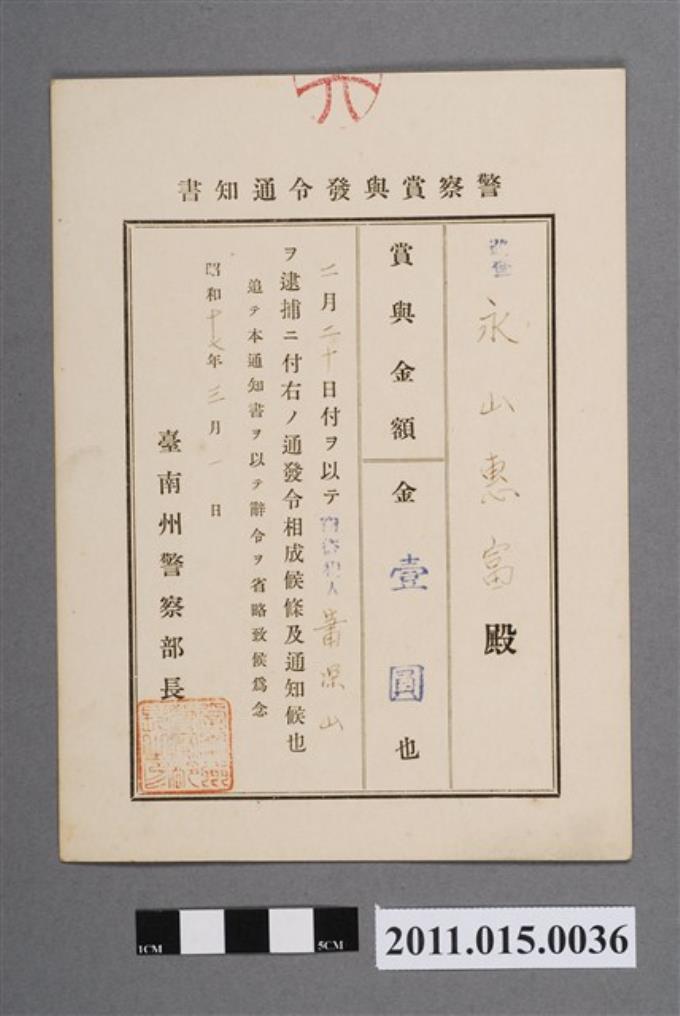 警察賞與發令通知書
永山惠富殿
賞與金額
金壹圓也
二月二十日付ヲ以テ 犯人
ヲ逮捕ニ付右ノ通發令相成候條及通知候也
追テ本通知書ヲ以テ辭令ヲ省略致候爲念
昭和十七年三月一日
臺南州警察部長
1CM
5CM
2011.015.0036